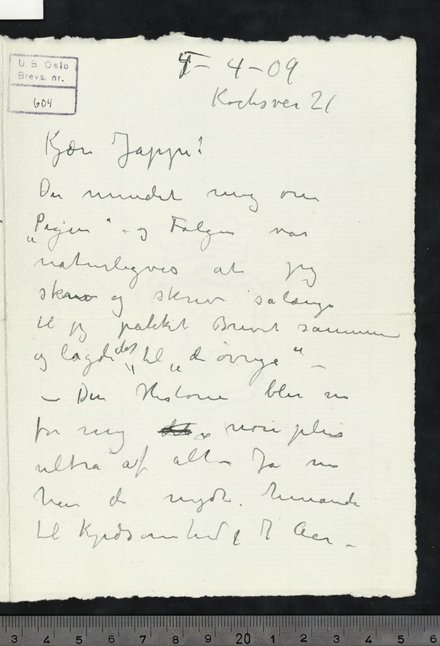 U B Oslo
Brevs. nr.
604
4 – 4 – 09
Kochsvei 21
Kjære Jappe!
Du mindet mig om
"Pigen" – og Følgen var
naturligvis at jeg
skrev og skrev salænge
til jeg pakket Brevet sammen
og lagde det til "de øvrige" –
– Den Historie blir nu
for mig non plus
ultra af alt – Ja nu
har de nydt hinanden
til Kjedsomhed i 7 Aar –
3 4 5 6 7 8 9 20 1 2 3 4 5 6